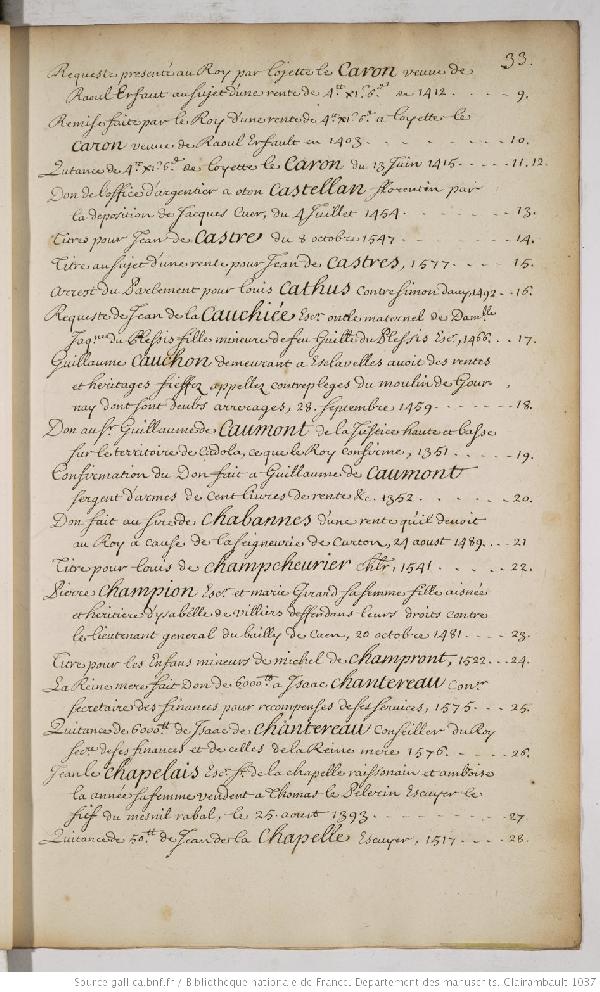 33.
Requeste presenté au Roy par loyette le Caron veuve de
Raoul Erfaut au sujet d'une rente de 4tt XI s 6d de 1412 - - - - - 9.
Remise faite par le Roy d'une rente de 4tt XI s 6d a loyette le
Caron veuve de Raoul Erfault en 1403 - - - - - 10.
Quitance de 4tt XI s 6d de loyette le Caron du 13 Juin 1415 - - - - 11. 12.
Don de l'office d'argentier a oton Castellan florentin par
la deposition de Jacques Cuer, du 4 Juillet 1454 - - - - - 13.
Titres pour Jean de Castre du 8 octobre 1547 - - - - - 14.
Titre au sujet d'une rente pour Jean de Castres, 1577 - - - - 15.
Arrest du Parlement pour louis Cathus contre simon dauy, 1492 - - 16.
Requeste de Jean de la Cauchiée Escr oncle maternel de Damelle
du Plessis filles mineure de feu Guille du Plessis Escr, 1466 - - 17.
Guillaume Cauchon demeurant a Esclavelles avoit des rentes
et heritages fieffez appellez contrepleges du moulin de Gour-
nay dont sont deubs arrerages, 28. septembre 1459 - - - - - 18.
Don au Sr Guillaume de Caumont de la Justice haute et basse
sur le territoire de ce que le Roy confirme, 1351 - - - - 19.
Confirmation du Don fait a Guillaume de Caumont
sergent d'armes de Cent livres de rente &c. 1352 - - - - - 20.
Don fait au sire de Chabannes d'une rente qu'il devoit
au Roy a cause de la seigneurie de Curton, 24 aoust 1489 - - - 21
Titre pour louis de Champcheurier Chlr, 1541 - - - - 22.
Pierre Champion Escr et marie Girard sa femme fille aisnée
et heritiere d'ysabelle de villiers deffendans leurs droits contre
le lieutenant general du bailly de Caen, 20 octobre 1481 - - - - 23.
Titre pour les Enfans mineurs de michel de Champront, 1522 - - 24.
La Reine mere fait Don de 6000tt a Isaac Chantereau Conr
secretaire des finances pour recompenses de ses services, 1575 - - - 25.
Quitance de 6000tt de Isaac de Chantereau Conseiller du Roy
secre de ses finances et de celles de la Reine mere 1576 - - - - 26.
Jean le Chapelais Escr Sr de la chapelle raissonain et amboise
la année sa femme vendent a Thomas le Pelerin Escuyer le
fief du mesnil rabal, le 25 aoust 1393 - - - - - 27.
Quitance de 50tt de Jean de la Chapelle Escuyer, 1517 - - - - 28.
Source gallica.bnf.fr / Bibliothèque nationale de France. Département des manuscrits. Clairambault 1037